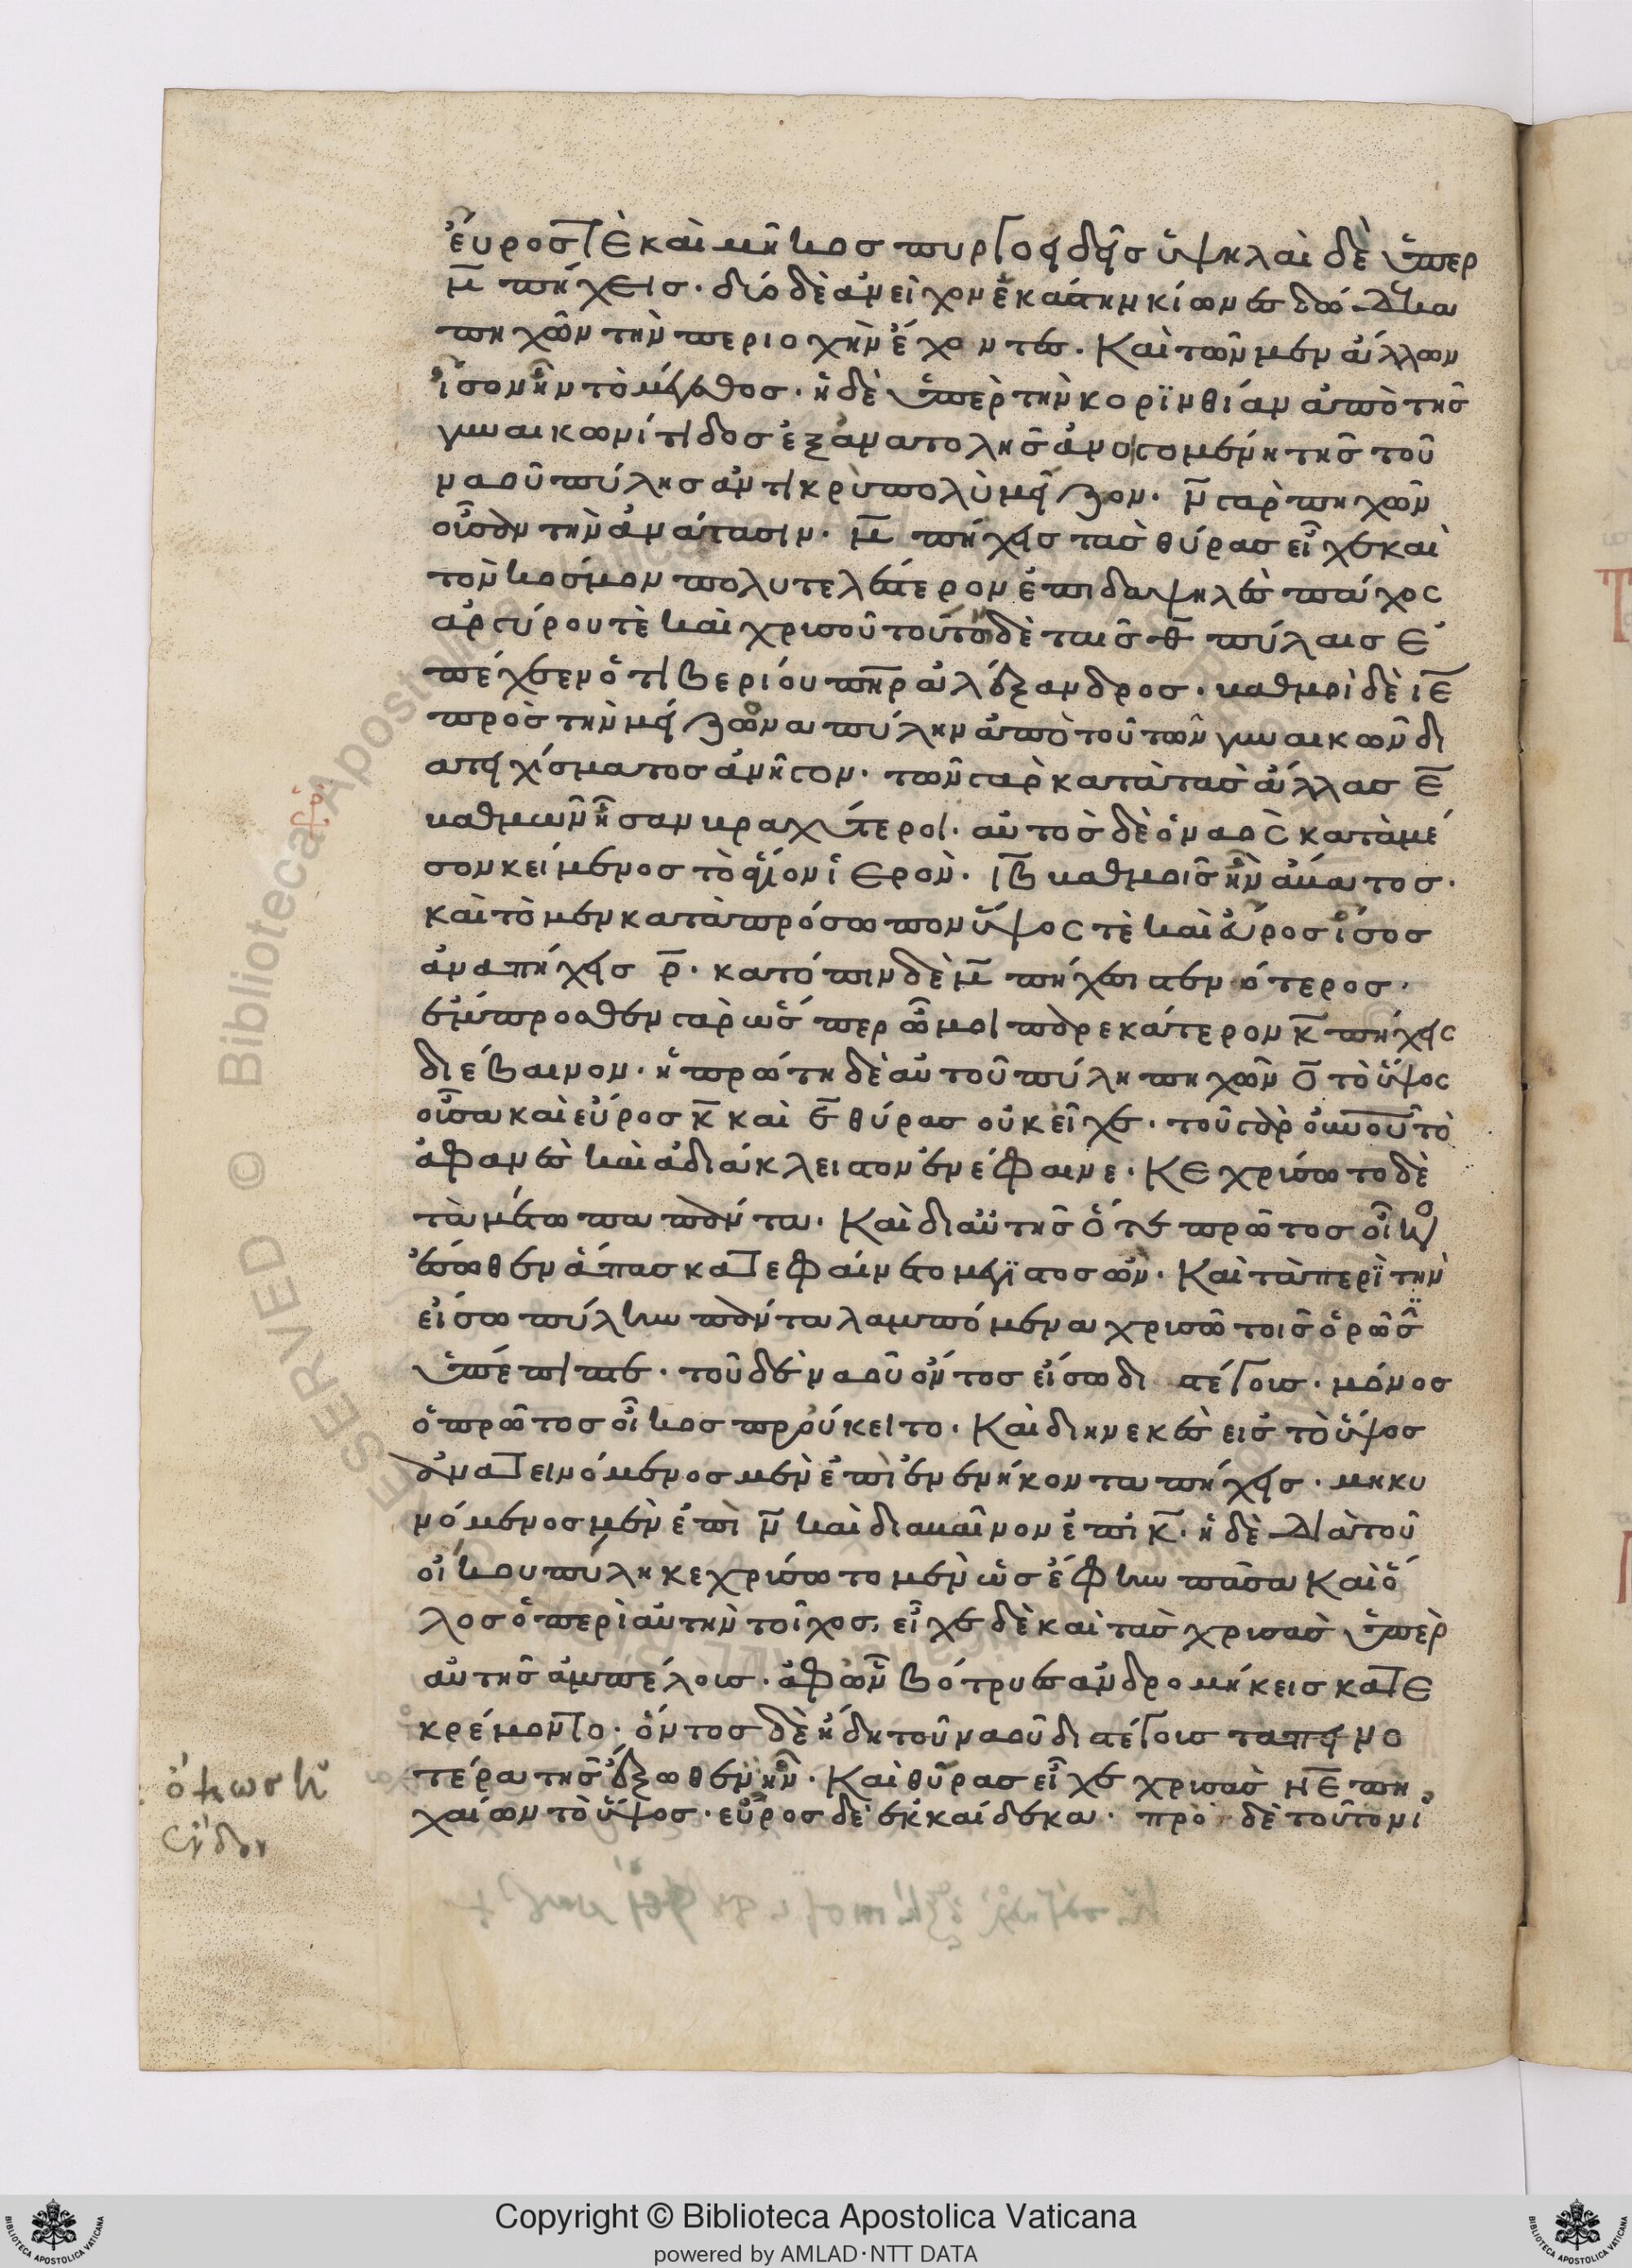 ἔυρος τὲ καὶ μῆκος πυργοειδεῖς ὑψηλαὶ δὲ ὑπὲρ
μ̅ πήχεις. δύο δὲ ἀνεῖχον ἑκάστην κίονες δώδεκα
πηχῶν τὴν περιοχὴν ἔχοντες. Καὶ τῶν μὲν ἄλλων
ἴσον ἦν τὸ μέγεθος. ἡ δὲ ὑπὲρ τὴν κορϊνθίαν ἀπὸ τῆς
γυναικωνίτιδος ἐξ ἀνατολῆς ἀνοιγομένη τῆς τοῦ
ναοῦ πύλης ἀντικρὺ πολὺ μεῖζον. ν̅ γὰρ πηχῶν
οὖσα τὴν ἀνάστασιν. μ̅ πήχεις τὰς θύρας εἶχε καὶ
τὸν κόσμον πολυτελέστερον ἐπιδαψιλὲς πάχος
ἀργύρου τὲ καὶ χρυσοῦ τοῦτο δὲ ταῖς θ̅ πύλαις ἐ
πέχεεν ὁ τιβερίου πη̅ρ ἀλέξανδρος. βαθμοὶ δὲ ιε̅
πρὸς τὴν μείζονα πύλην ἀπὸ τοῦ τῶν γυναικῶν δι
ατειχίσματος ἀνῆγον. τῶν γὰρ κατὰ τὰς ἄλλας ε̅
βαθμῶν ἦσαν βραχύτεροι. αὐτὸς δὲ ὁ ναὸς κατὰ μέ
σον κείμενος τὸ θεῖον ἱερὸν. ιβ̅ βαθμοῖς ἦν ἀνάβατος.
καὶ τὸ μὲν κατὰ πρόσωπον ὕψος τὲ καὶ εὖρος ἴσος
ἀνα πήχεις ρ̅. κατόπιν δὲ μ̅ πήχεσι στενότερος.
ἔμπροσθεν γὰρ ὥσπερ ὦμοι παρ ἑκάτερον κ̅ πήχεις
διέβαινον. ἡ πρώτη δὲ αὐτοῦ πύλη πηχῶν ο̅ τὸ ὕψος
οὖσα καὶ εὖρος κ̅ καὶ ε̅ θύρας οὐκ εἶχε. τοῦ γὰρ οὐ̅νοῦ τὸ
ἀφανὲς καὶ ἀδιάκλειστον ἐνέφαινε. Κεχρύσωτο δὲ
τὰ μέτωπα πάντα. Καὶ δι αὐτῆς ὅτε πρῶτος οἶκος
ἔσωθεν ἅπας κατεφαίνετο μέγϊστος ὤν. Καὶ τὰ περϊ τὴν
εἴσω πύλην πάντα λαμπόμενα χρυσῶ τοῖς ὁρῶσ̈
ὑπέπιπτε. τοῦ δὲ ναοῦ ὄντος εἴσω διστέγου. μόνος
ὁ πρῶτος οἶκος προύκειτο. Καὶ διηνεκὲς εἰς τὸ ὕψος
ἀνατεινόμενος μὲν ἐπὶ ἐνενήκοντα πήχεις. μηκυ
νόμενος μὲν ἐπὶ ν̅ καὶ διαβαῖνον ἐπὶ κ̅. ἡ δὲ διὰ τοῦ
οἴκου πύλη κεχρύσωτο μὲν ὡς ἔφην πᾶσα Καὶ ὅ
λος ὁ περὶ αὐτὴν τοῖχος, εἶχε δὲ καὶ τὰς χρυσὰς ὑπὲρ
αὐτῆς ἀμπέλους. ἀφ ὧν βότρυες ἀνδρομήκεις κατε
κρέμοντο. ὄντος δὲ ἤδη τοῦ ναοῦ διστέγου ταπεινο
τέρα τῆς ἔξωθεν ἦν. Καὶ θύρας εἶχε χρυσὰς ηε̅ πη
χαίων τὸ ὕψος. εὖρος δὲ ἑκκαίδεκα. πρὸ δὲ τούτον ἰ
ὄπως ἦν
ἔνδον
Copyright © Biblioteca Apostolica Vaticana
powered by AMLAD·NTT DATA